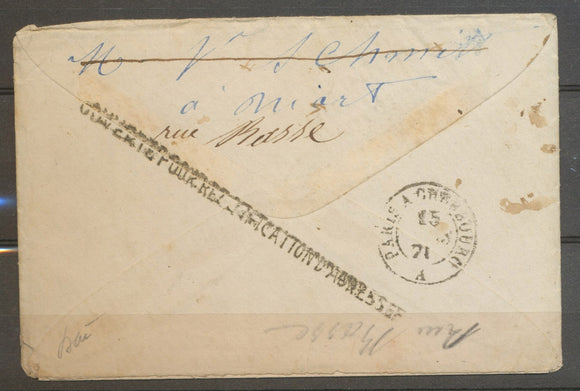 M Vr Schmitt
a Niort
rue Basse
OUVERTE POUR RECTIFICATION D'ADRESSE
PARIS A CHERBOURG
15
71
A
rue Basse